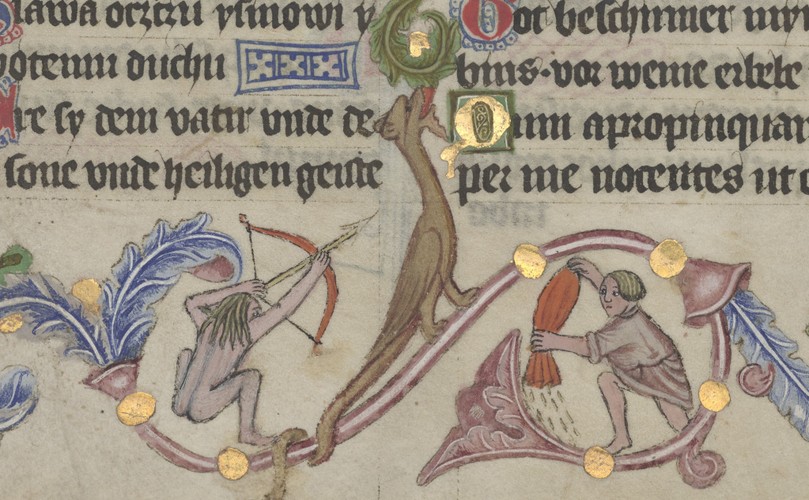 ława oczczu ysinowi y
potemu duchu
re sy dem vatir vnde de
sone vnde heiligen geiste
Got beschirmer my
bins·vor weme erbebe
Dum apropinquan
per me nocentes ut